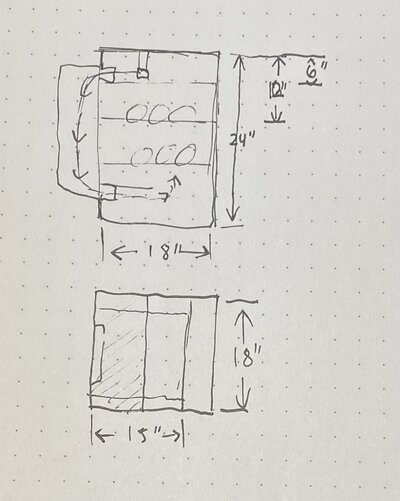 6"
12"
24"
18"
18"
15"